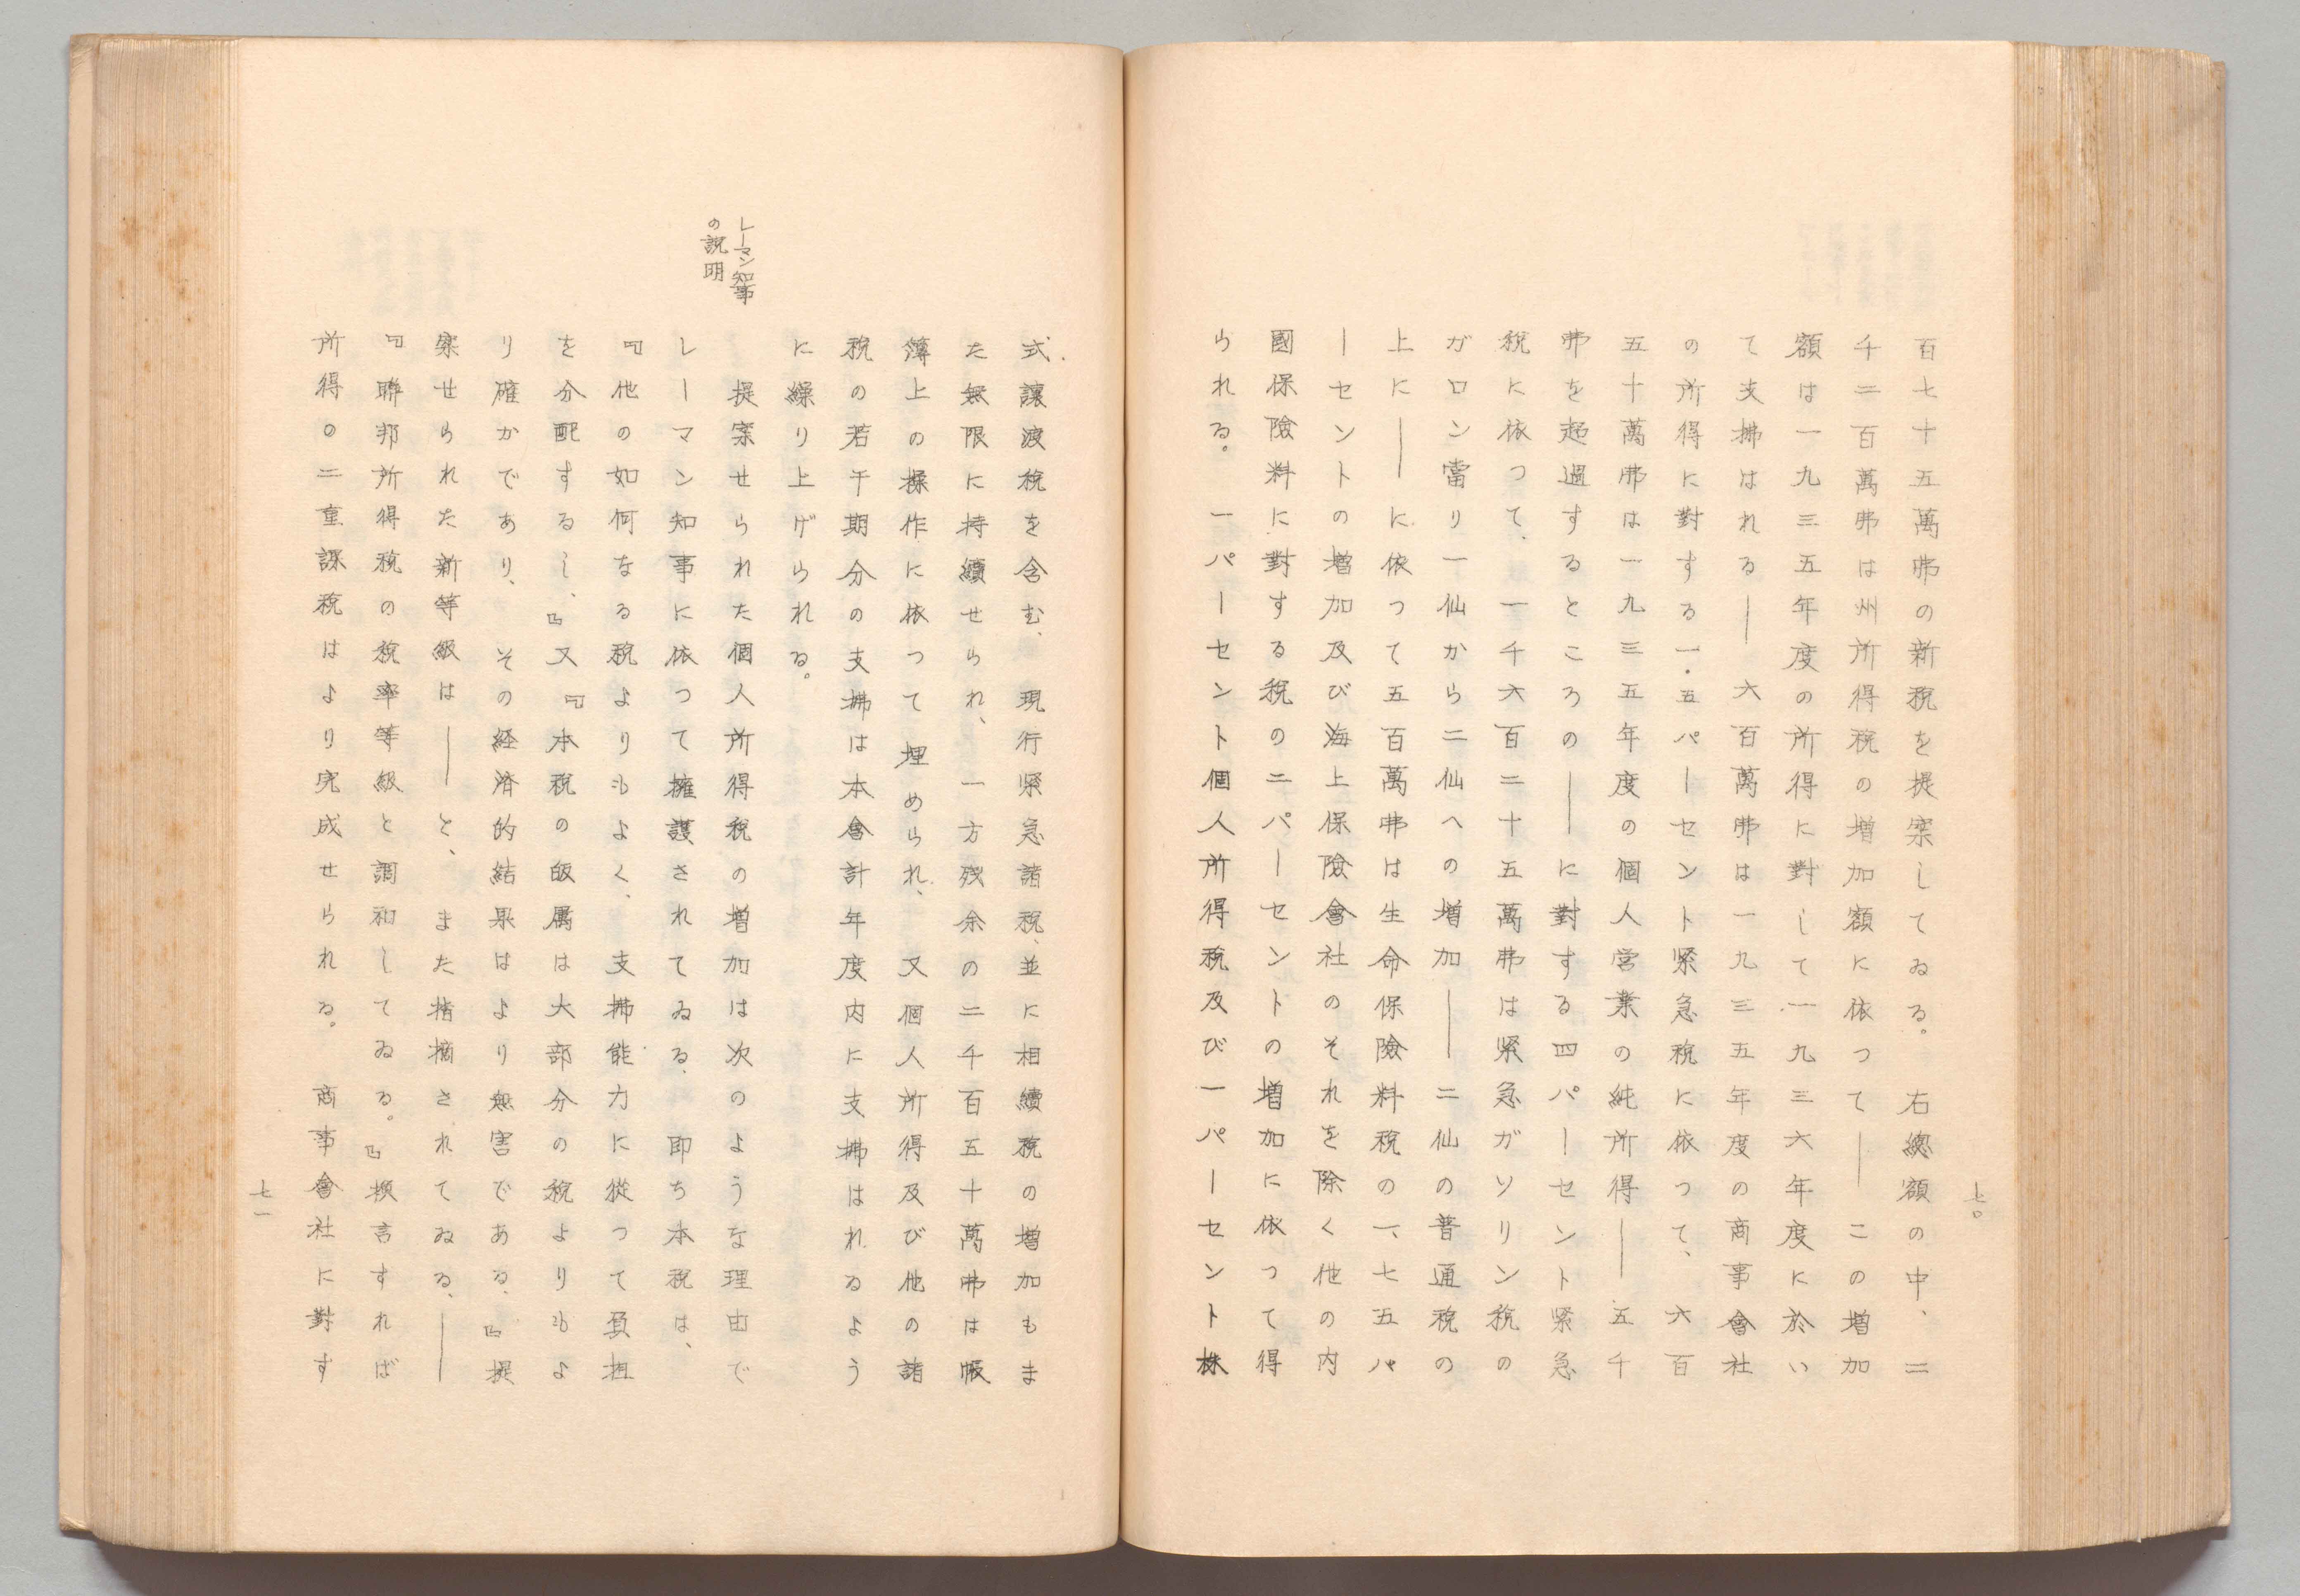 七〇
百七十五萬弗の新税を提案してゐる。右總額の中、二
千二百萬弗は州所得税の増加額に依つて――この増加
額は一九三五年度の所得に對して一九三六年度に於い
て支拂はれる――六百萬弗は一九三五年度の商事會社
の所得に對する一・五パーセント緊急税に依つて、六百
五十萬弗は一九三五年度の個人営業の純所得――五千
弗を超過するところの――に對する四パーセント緊急
税に依つて、一千六百二十五萬弗は緊急ガソリン税の
ガロン當り一仙から二仙への増加――二仙の普通税の
上に――に依つて五百萬弗は生命保險料税の一、七五パ
ーセントの増加及び海上保險會社のそれを除く他の内
國保險料に對する税の二パーセントの増加に依つて得
られる。一パーセント個人所得税及び一パーセント株
式讓渡税を含む、現行緊急諸税、並に相續税の増加もま
た無限に持續せられ、一方残余の二千百五十萬弗は帳
簿上の操作に依つて埋められ、又個人所得及び他の諸
税の若干期分の支拂は本會計年度内に支拂はれるよう
に繰り上げられる。
レーマン知事
の説明
提案せられた個人所得税の増加は次のような理由で
レーマン知事に依つて擁護されてゐる、即ち本税は、
『他の如何なる税よりもよく、支拂能力に從つて負担
を分配するし、』又『本税の皈属は大部分の税よりもよ
り確かであり、その経済的結果はより無害である、』提
案せられた新等級は――と、また指摘されてゐる、――
『聯邦所得税の税率等級と調和してゐる。』換言すれば
所得の二重課税はより完成せられる。商事會社に對す
七一